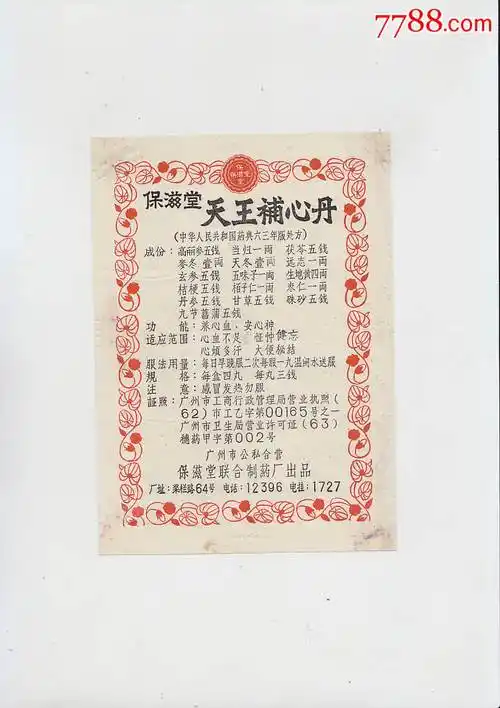 7788.com
保滋堂
保滋堂 天王補心丹
(中华人民共和国药典六三年版处方)
成份：高丽参五钱 当归一兩 茯苓五钱
麥冬壹兩 天冬壹兩 远志一兩
玄参五钱 五味子一兩 生地黄四兩
桔梗五钱 栢子仁一兩 枣仁一兩
丹参五钱 甘草五钱 硃砂五钱
九节菖蒲五钱
功 能：养心血，安心神
适应范围：心血不足 怔忡健忘
心煩多汗 大便秘結
服法用量：每日早晚服二次每服一九温開水送服
規 格：每盒四丸 每丸三钱
注 意：感冒发热勿服
証照：广州市工商行政管理局营业执照(
62)市工乙字第00165号之一
广州市卫生局营业许可証(63)
穗药甲字第002号
广州市公私合营
保滋堂联合制药厂出品
厂址：桨栏路64号 电话：12396 电挂：1727